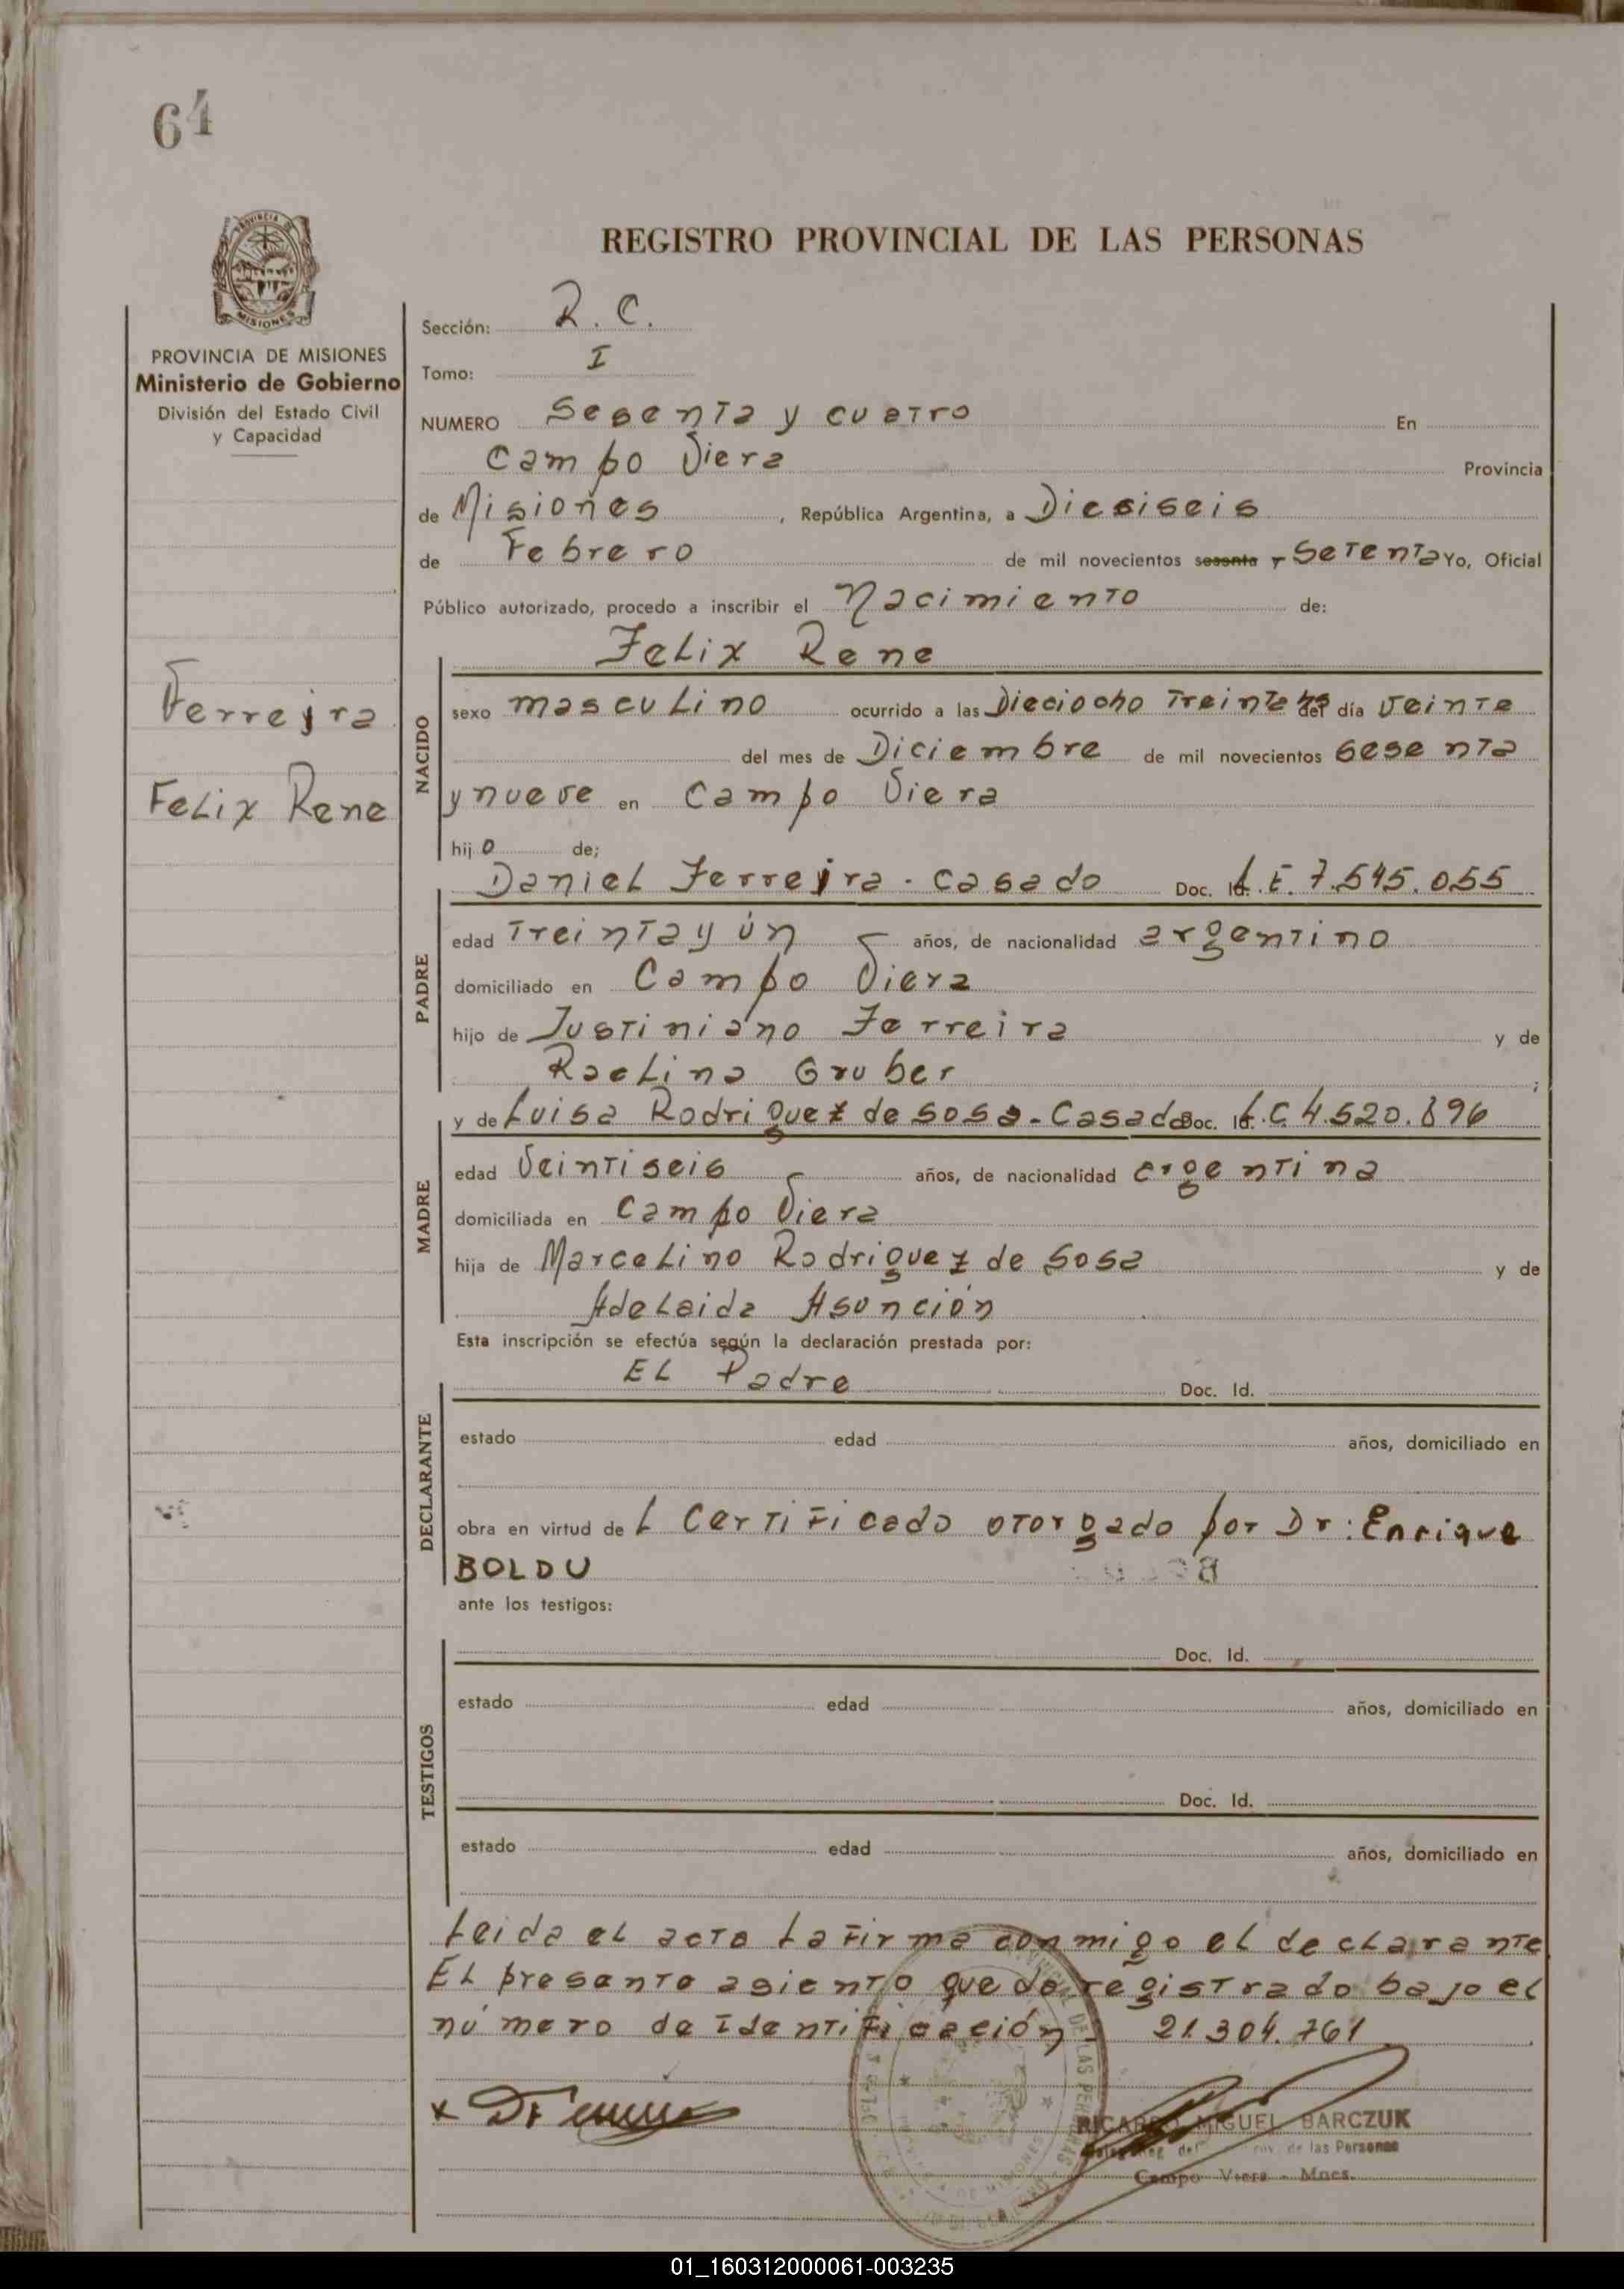 64
PROVINCIA DE MISIONES
Ministerio de Gobierno
División del Estado Civil
y Capacidad
Ferreira
Felix Rene
REGISTRO PROVINCIAL DE LAS PERSONAS
Sección: R. C.
Tomo: I
NUMERO Sesenta y cuatro En
Campo Viera Provincia
de Misiones, República Argentina, a Diesiseis
de Febrero de mil novecientos sesenta y Setenta Yo, Oficial
Público autorizado, procedo a inscribir el Nacimiento de:
Felix Rene
NACIDO
sexo masculino ocurrido a las Dieciocho Treinta hs del día veinte
del mes de Diciembre de mil novecientos sesenta
y nueve en Campo Viera
hijo de;
Daniel Ferreira - casado Doc. Id. L.E. 7.545.055
PADRE
edad Treinta y ún años, de nacionalidad argentino
domiciliado en Campo Viera
hijo de Justiniano Ferreira y de
Raelina Gruber;
y de Luisa Rodriguez de Sosa - Casada Doc. Id. L.C 4.520.896
MADRE
edad Veintiseis años, de nacionalidad argentina
domiciliada en Campo Viera
hija de Marcelino Rodriguez de Sosa y de
Adelaida Asunción
Esta inscripción se efectúa según la declaración prestada por:
EL Padre Doc. Id.
DECLARANTE
estado edad años, domiciliado en
obra en virtud de L Certificado otorgado por Dr: Enrique
BOLDU
ante los testigos:
Doc. Id.
TESTIGOS
estado edad años, domiciliado en
Doc. Id.
estado edad años, domiciliado en
Leida el acta La firma conmigo el declarante
El presente asiento queda registrado bajo el
número de Identificación 21.304.761
RICARDO MIGUEL BARCZUK
de las Personas
Campo Viera - Mnes.
01_160312000061-003235